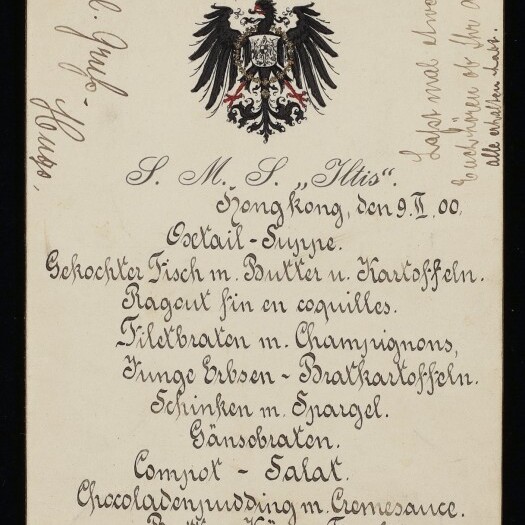 S. M. S. „Iltis“.
Hongkong, den 9. II. 00.
Oxtail - Suppe.
Gekochter Fisch m. Butter u. Kartoffeln.
Ragout fin en coquilles.
Filetbraten m. Champignons,
Junge Erbsen - Bratkartoffeln.
Schinken m. Spargel.
Gänsebraten.
Compot - Salat.
Chocoladenpudding m. Cremesauce.
Gruß -
Hugo.
Laßt mal etwas
ob Ihr
alle erhalten habt.